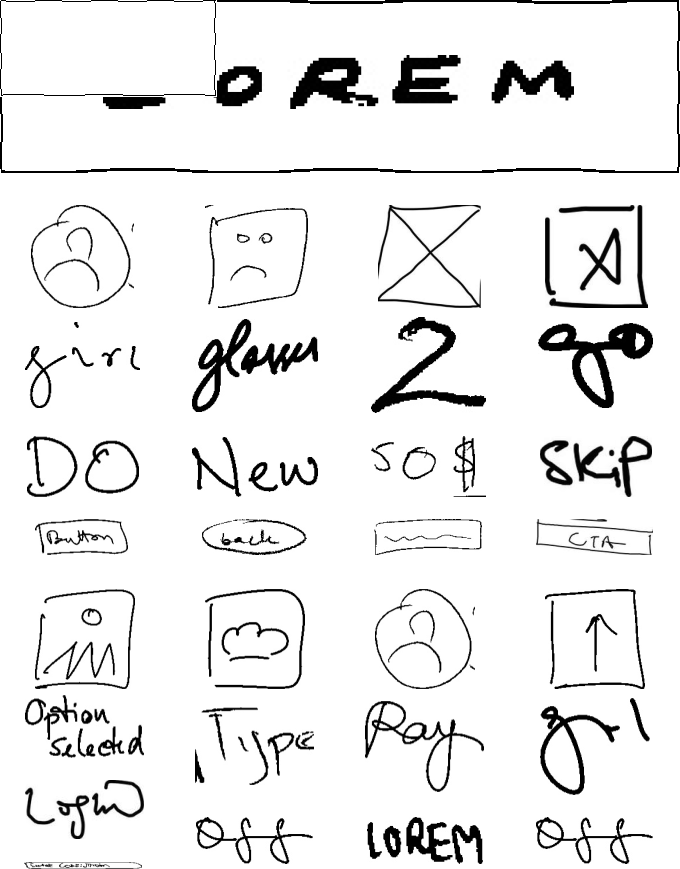 LOREM
girl glasses 2 go
DO New 50$ Skip
Button back CTA
Option
selected
Type Ray girl
Login
Off LOREM Off